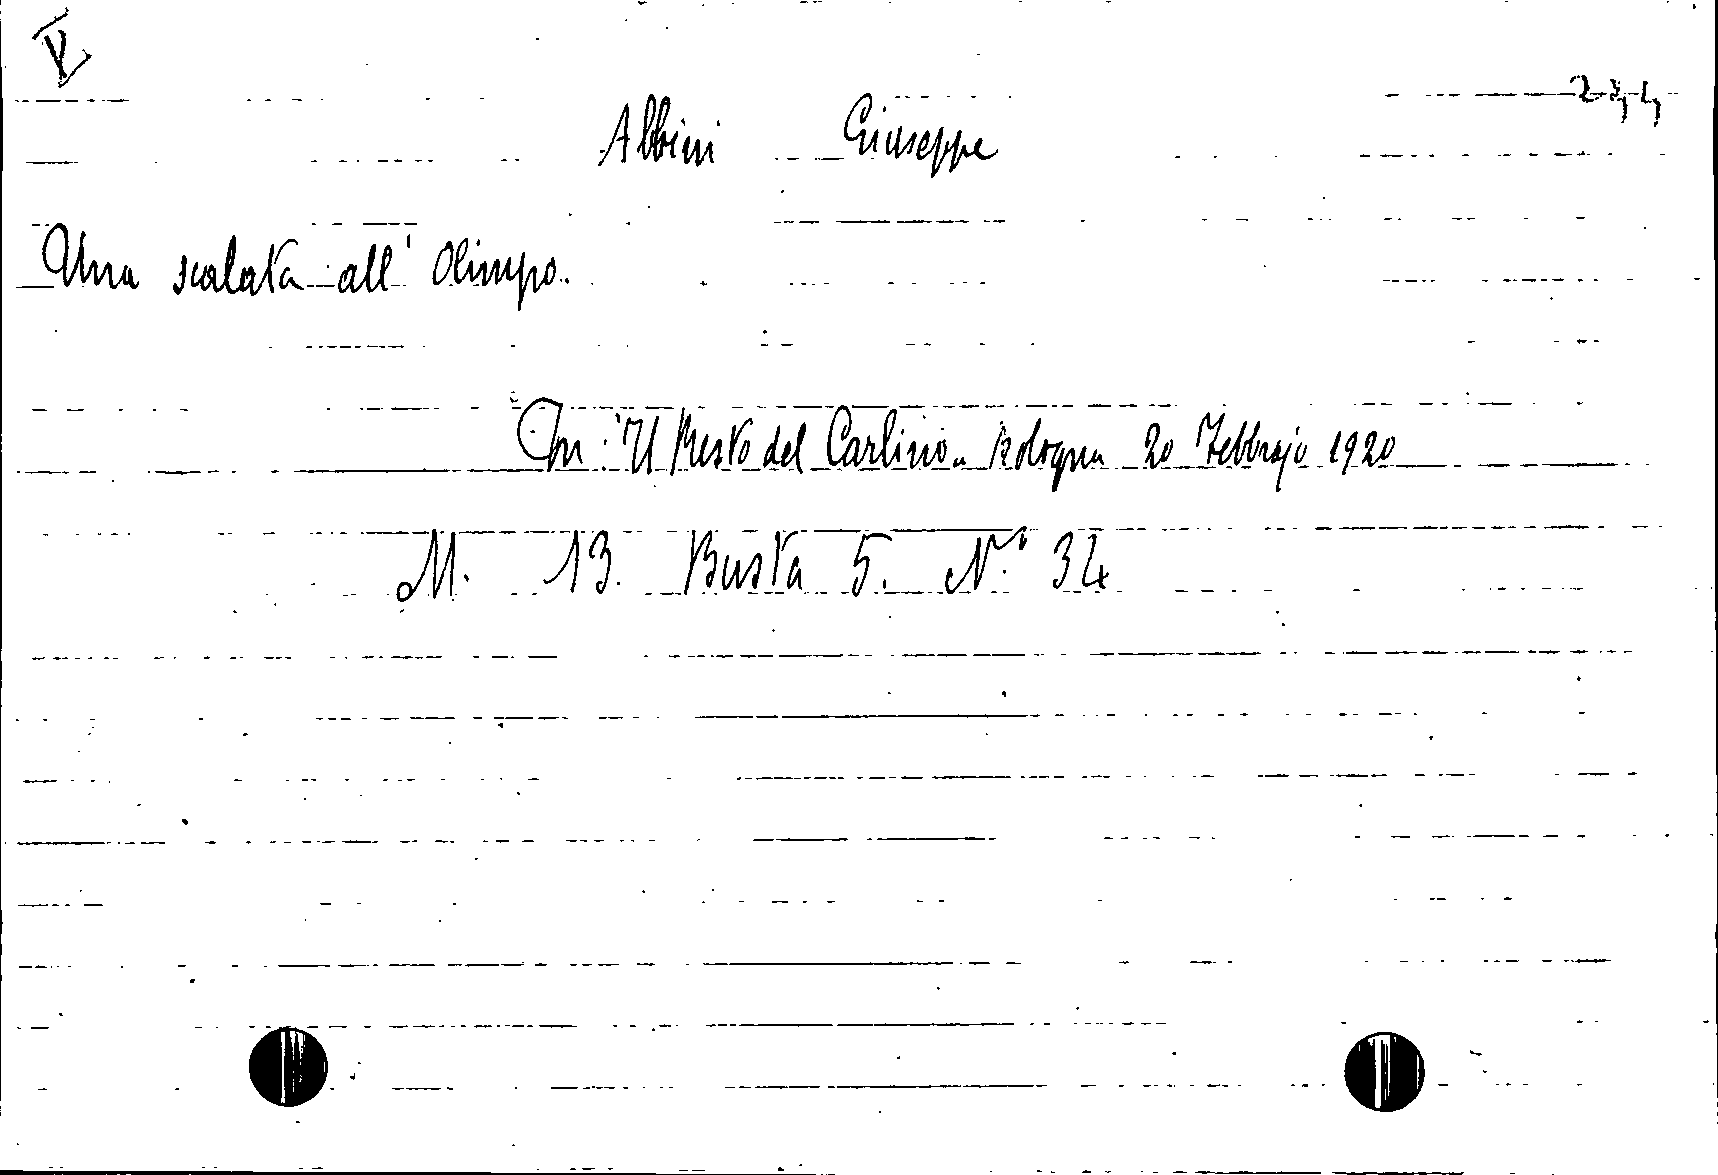 244
Albini Giuseppe
Una scalata all' Olimpo.
In "Il Resto del Carlino" Bologna 20 Febbrajo 1920
M. 13. Busta 5. N.° 34